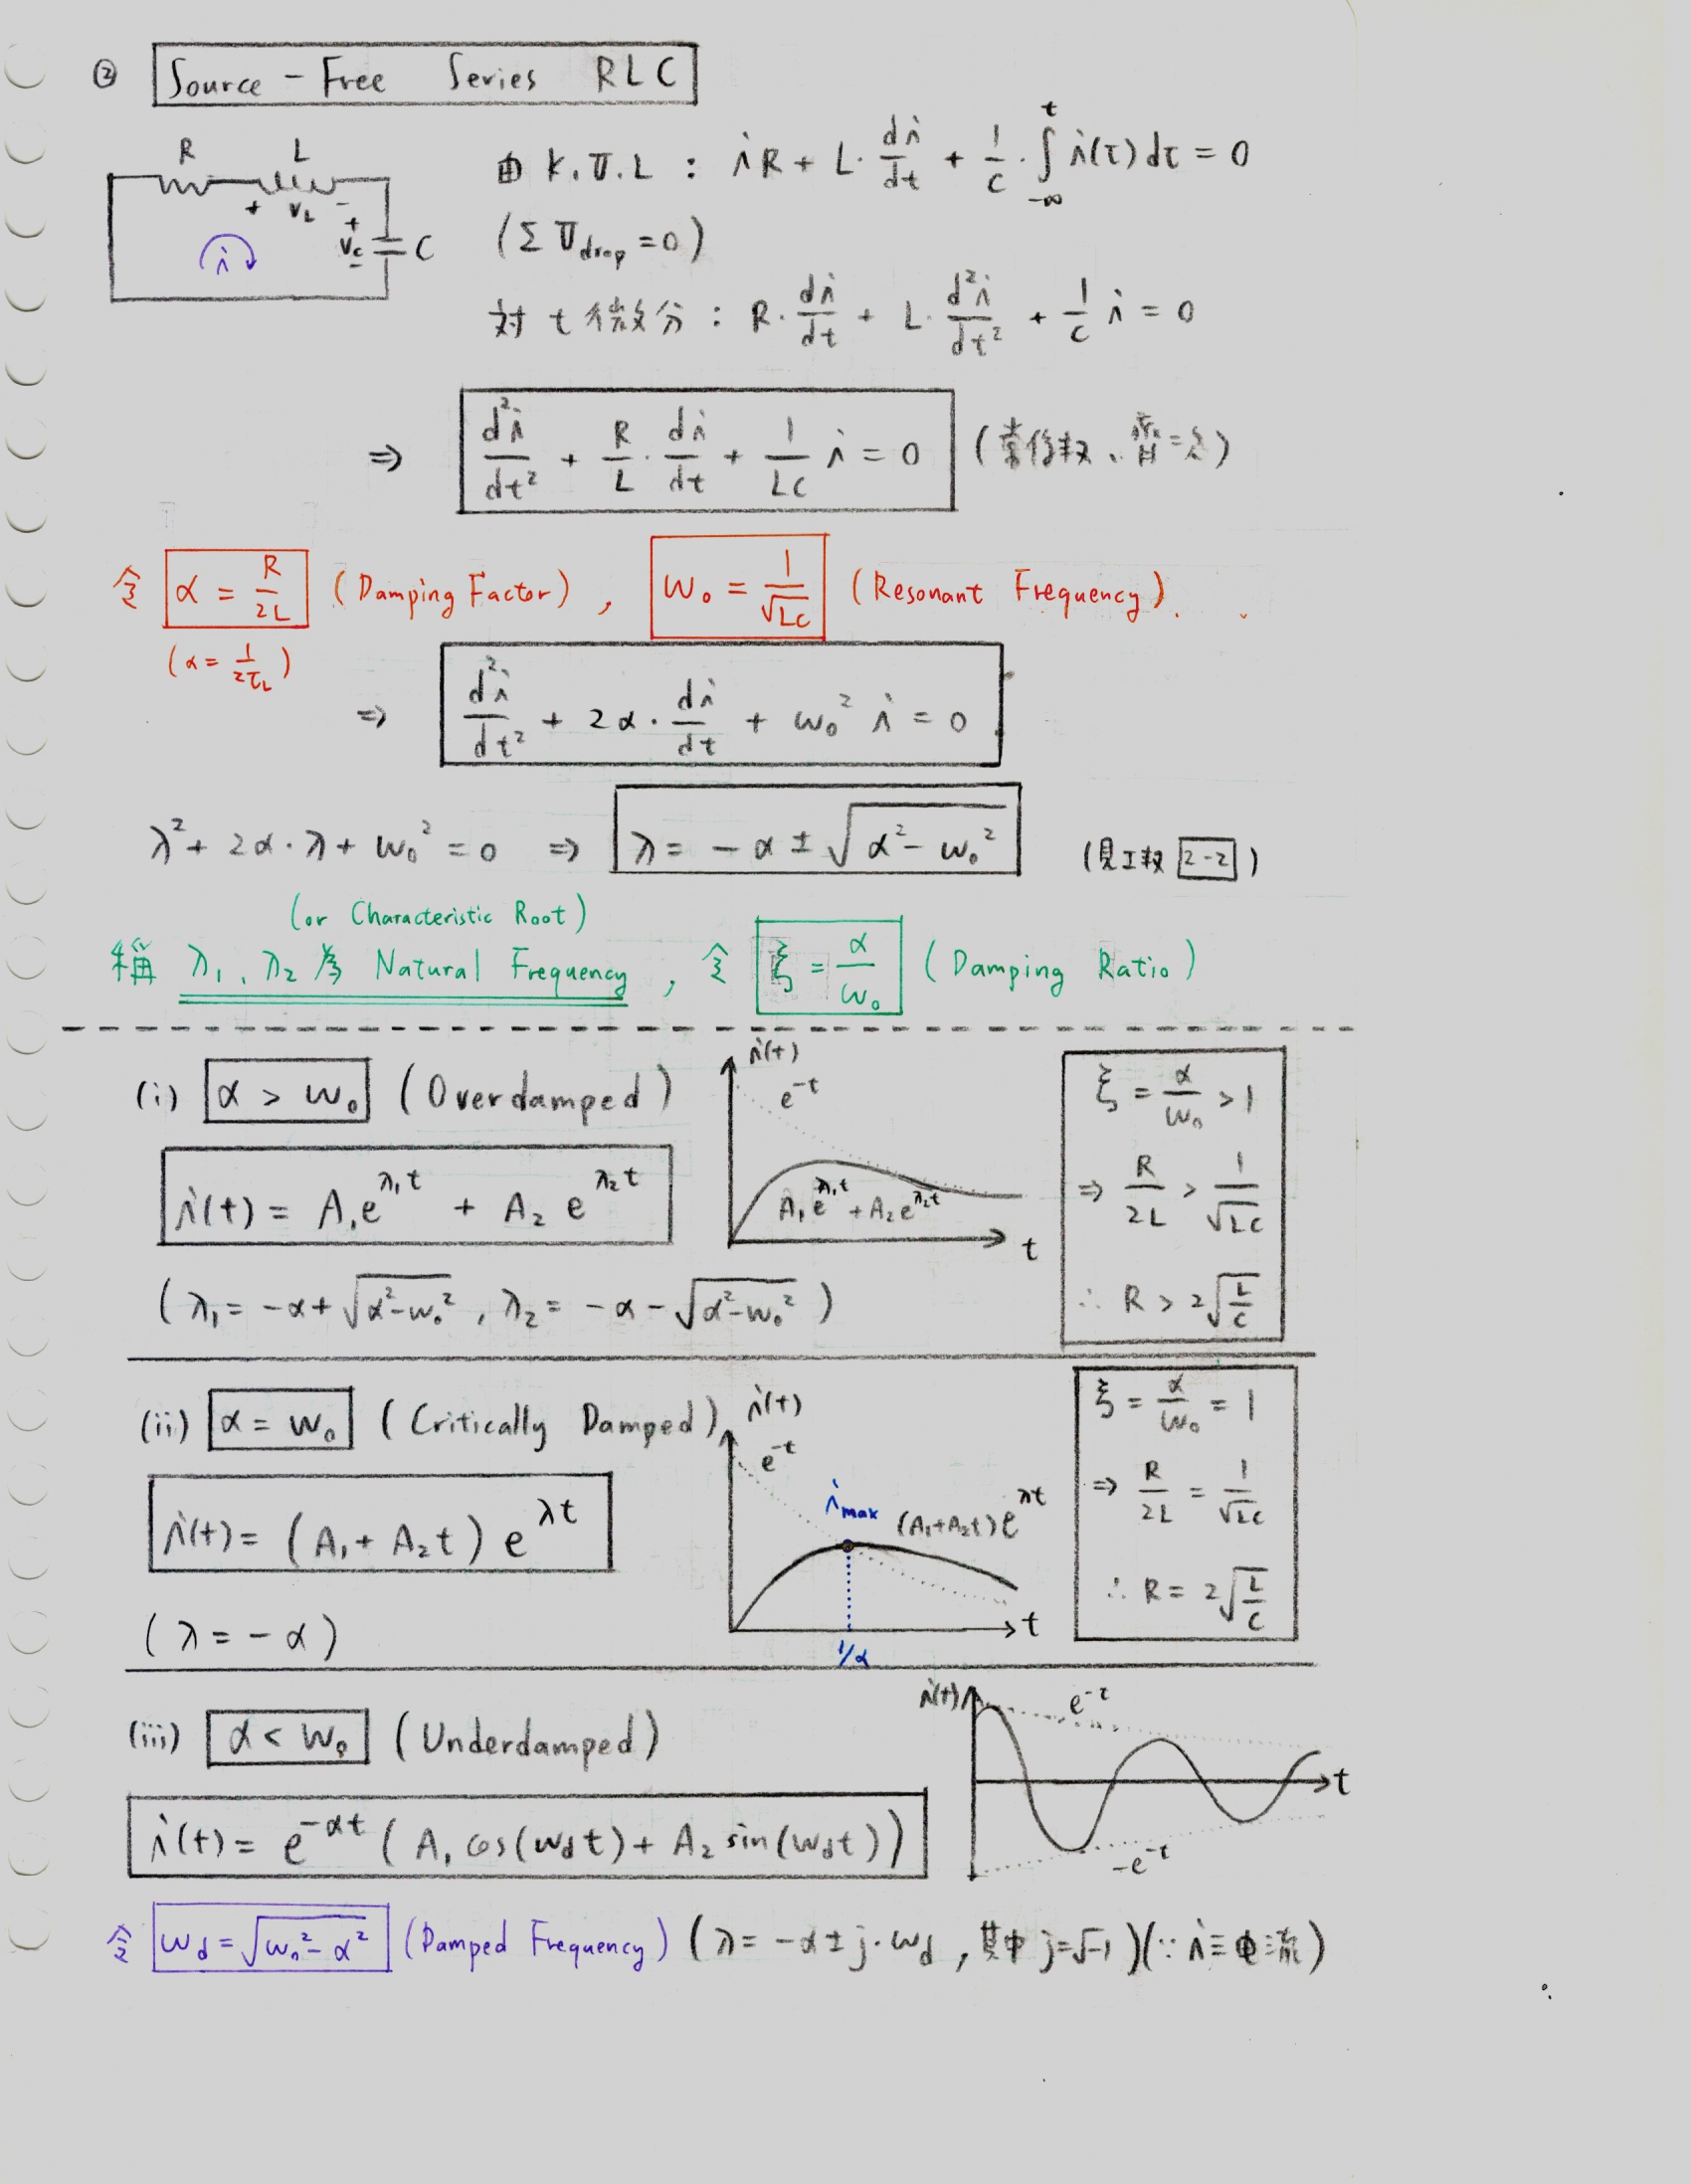 ② Source - Free Series RLC
R L
+ VL -
+ Vc - C
i
由 K.V.L : iR + L·di/dt + 1/C·∫_{-∞}^{t} i(τ)dτ = 0
(Σ Vdrop = 0)
対 t 微分 : R·di/dt + L·d²i/dt² + 1/C i = 0
⇒ d²i/dt² + R/L·di/dt + 1/LC i = 0 (常係数、齊=次)
令 α = R/2L (Damping Factor) , ω₀ = 1/√LC (Resonant Frequency).
(α = 1/2τL)
⇒ d²i/dt² + 2α·di/dt + ω₀² i = 0
λ² + 2α·λ + ω₀² = 0 ⇒ λ = -α ± √(α² - ω₀²) (見工数 2-2)
(or Characteristic Root)
稱 λ₁、λ₂ 為 Natural Frequency , 令 ξ = α/ω₀ (Damping Ratio)
(i) α > ω₀ (Overdamped)
i(t) = A₁e^{λ₁t} + A₂ e^{λ₂t}
(λ₁ = -α + √(α²-ω₀²) , λ₂ = -α - √(α²-ω₀²) )
i(t)
e^{-t}
A₁e^{λ₁t} + A₂e^{λ₂t}
t
ξ = α/ω₀ > 1
⇒ R/2L > 1/√LC
∴ R > 2√(L/C)
(ii) α = ω₀ (Critically Damped)
i(t) = (A₁ + A₂t) e^{λt}
(λ = -α)
i(t)
e^{-t}
imax
(A₁+A₂t)e^{λt}
t
1/α
ξ = α/ω₀ = 1
⇒ R/2L = 1/√LC
∴ R = 2√(L/C)
(iii) α < ω₀ (Underdamped)
i(t) = e^{-αt} (A₁ cos(ωdt) + A₂ sin(ωdt))
i(t)
e^{-t}
t
-e^{-t}
令 ωd = √(ω₀² - α²) (Damped Frequency) (λ = -α ± j·ωd , 其中 j=√-1)(∵ i ≡ 電流)